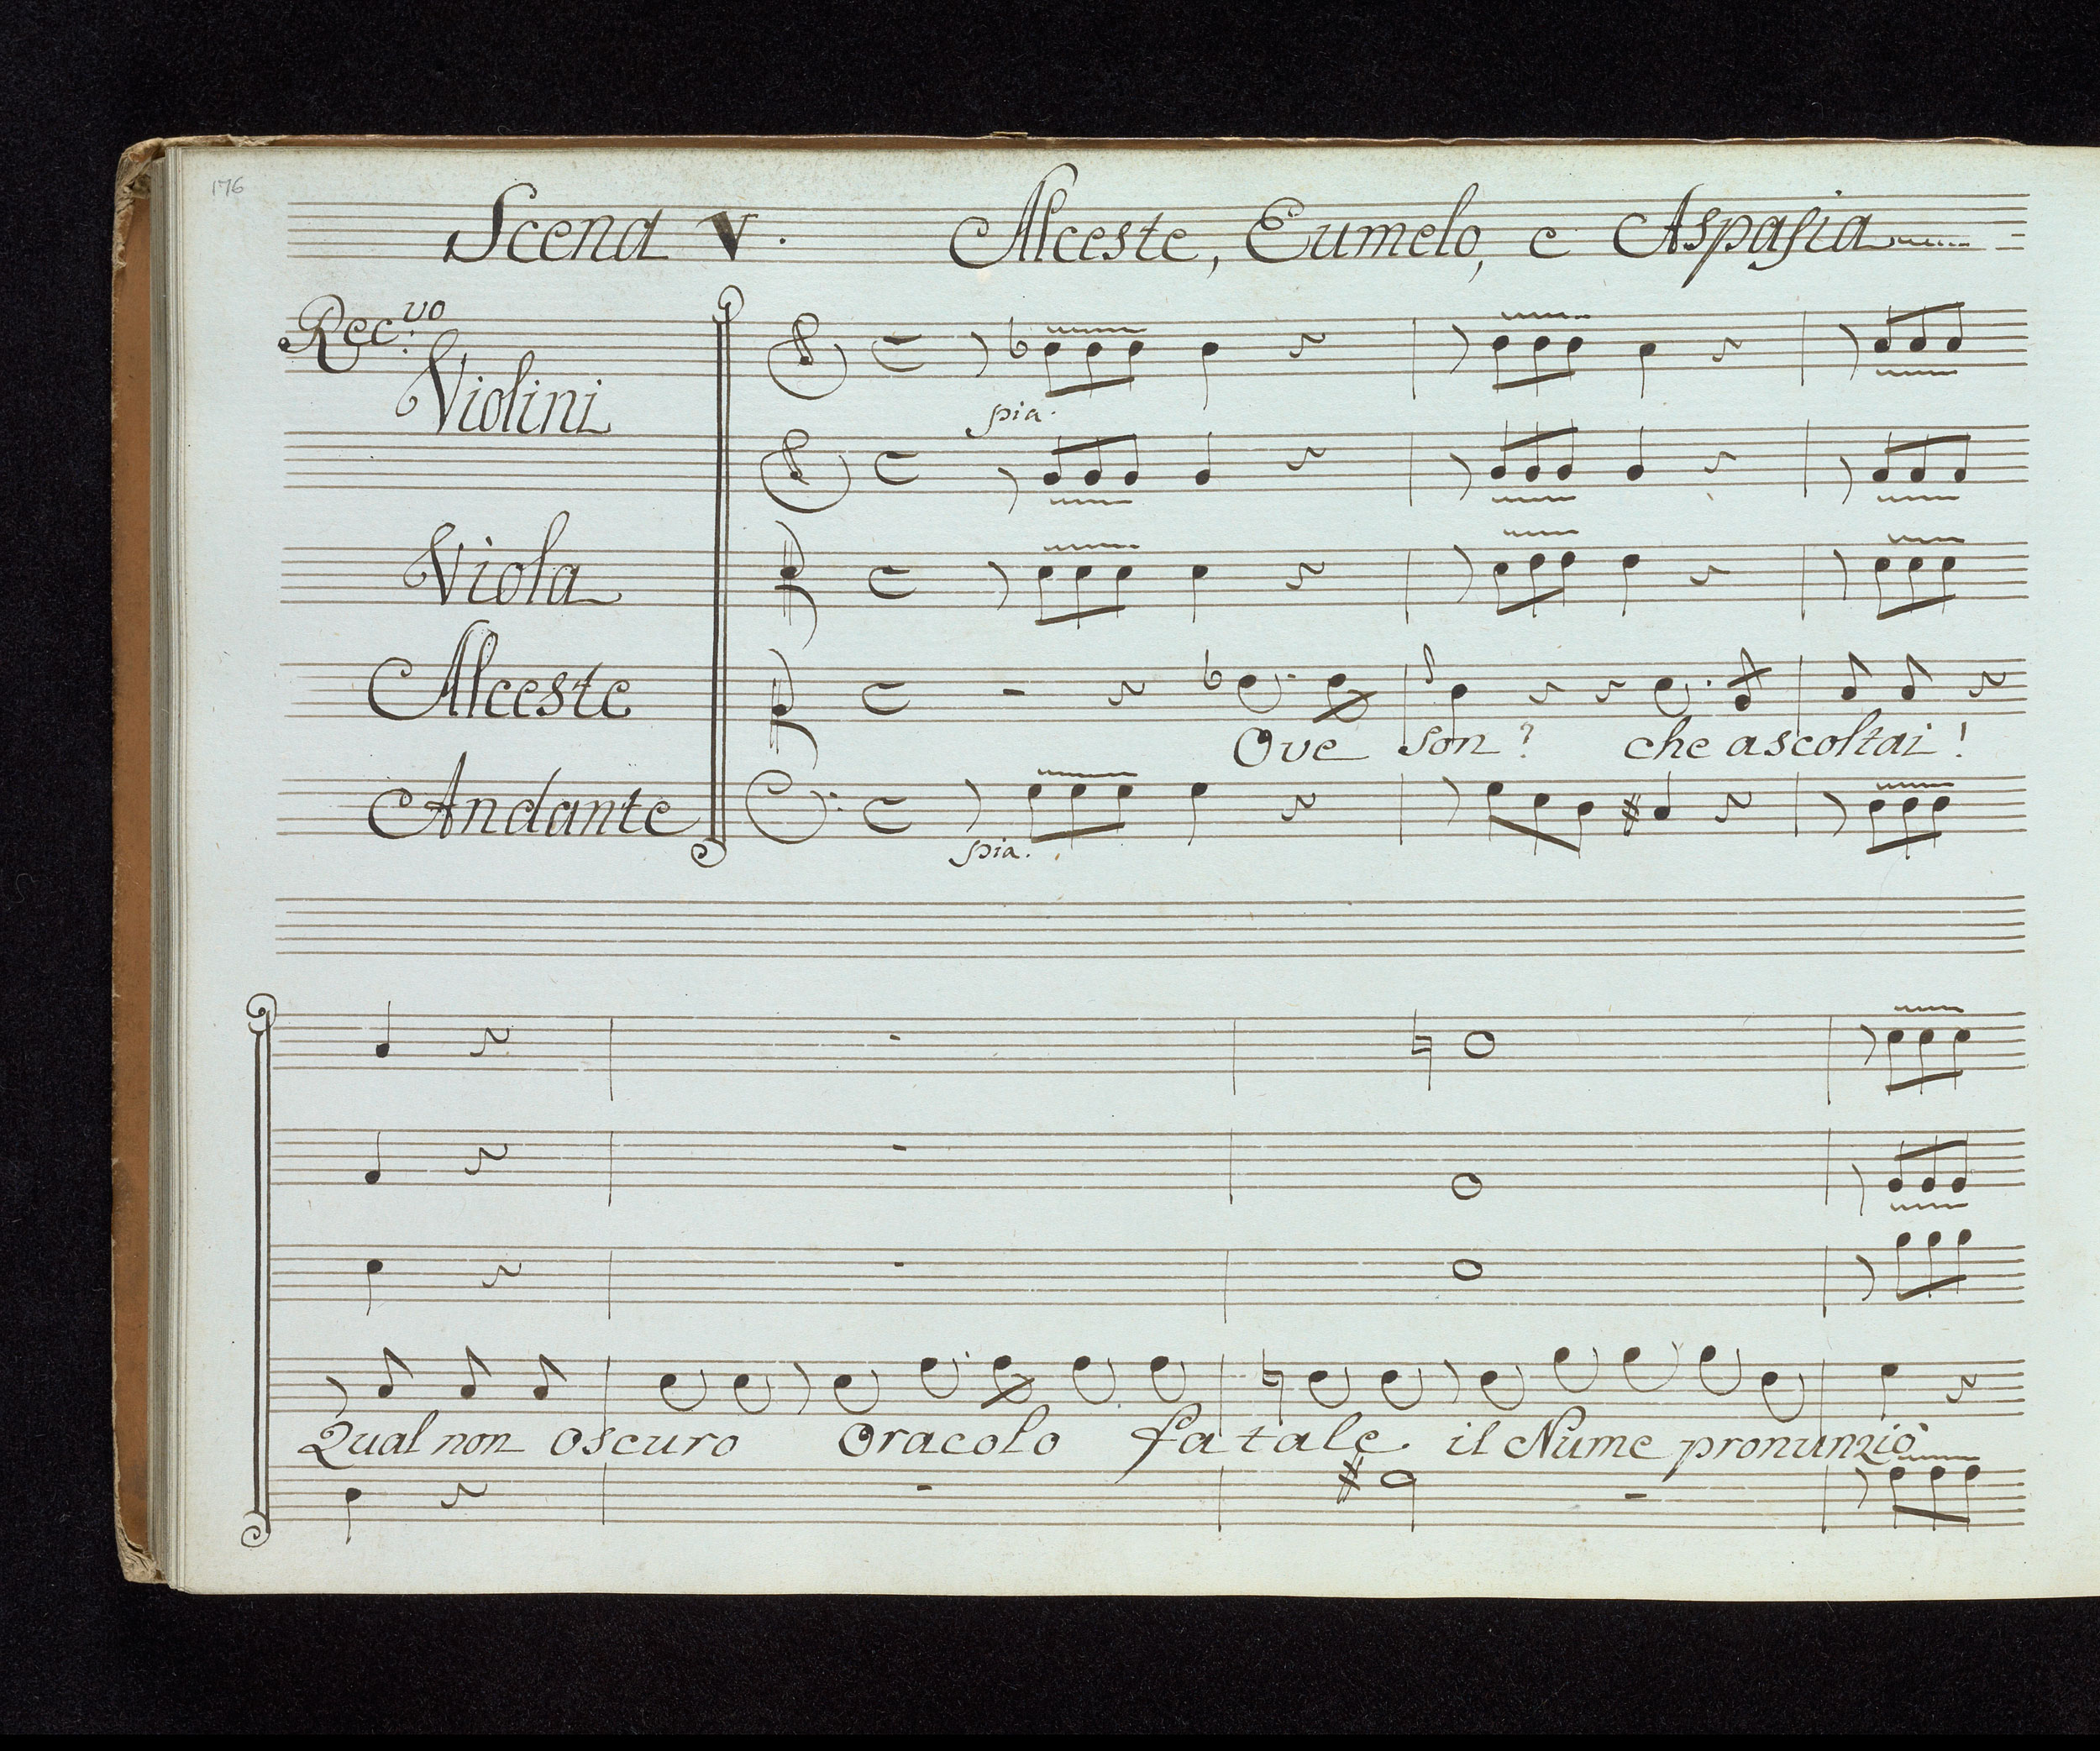 176
Scena V. Alceste, Eumelo, e Aspasia
Rec.vo
Violini
pia.
Viola
Alceste
Ove son? che ascoltai!
Andante
pia.
Qual non oscuro Oracolo fatale il Nume pronunziò